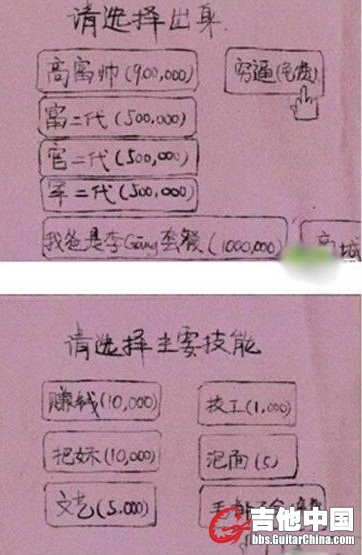 请选择出身
高富帅(900,000)
穷逼(免费)
富二代(500,000)
官二代(500,000)
军二代(500,000)
我爸是李Gang套餐(1000,000)
高城
请选择主要技能
赚钱(10,000)
技工(1,000)
把妹(10,000)
泡面(5)
文艺(5.000)
毛都不会
吉他中国
bbs.GuitarChina.com